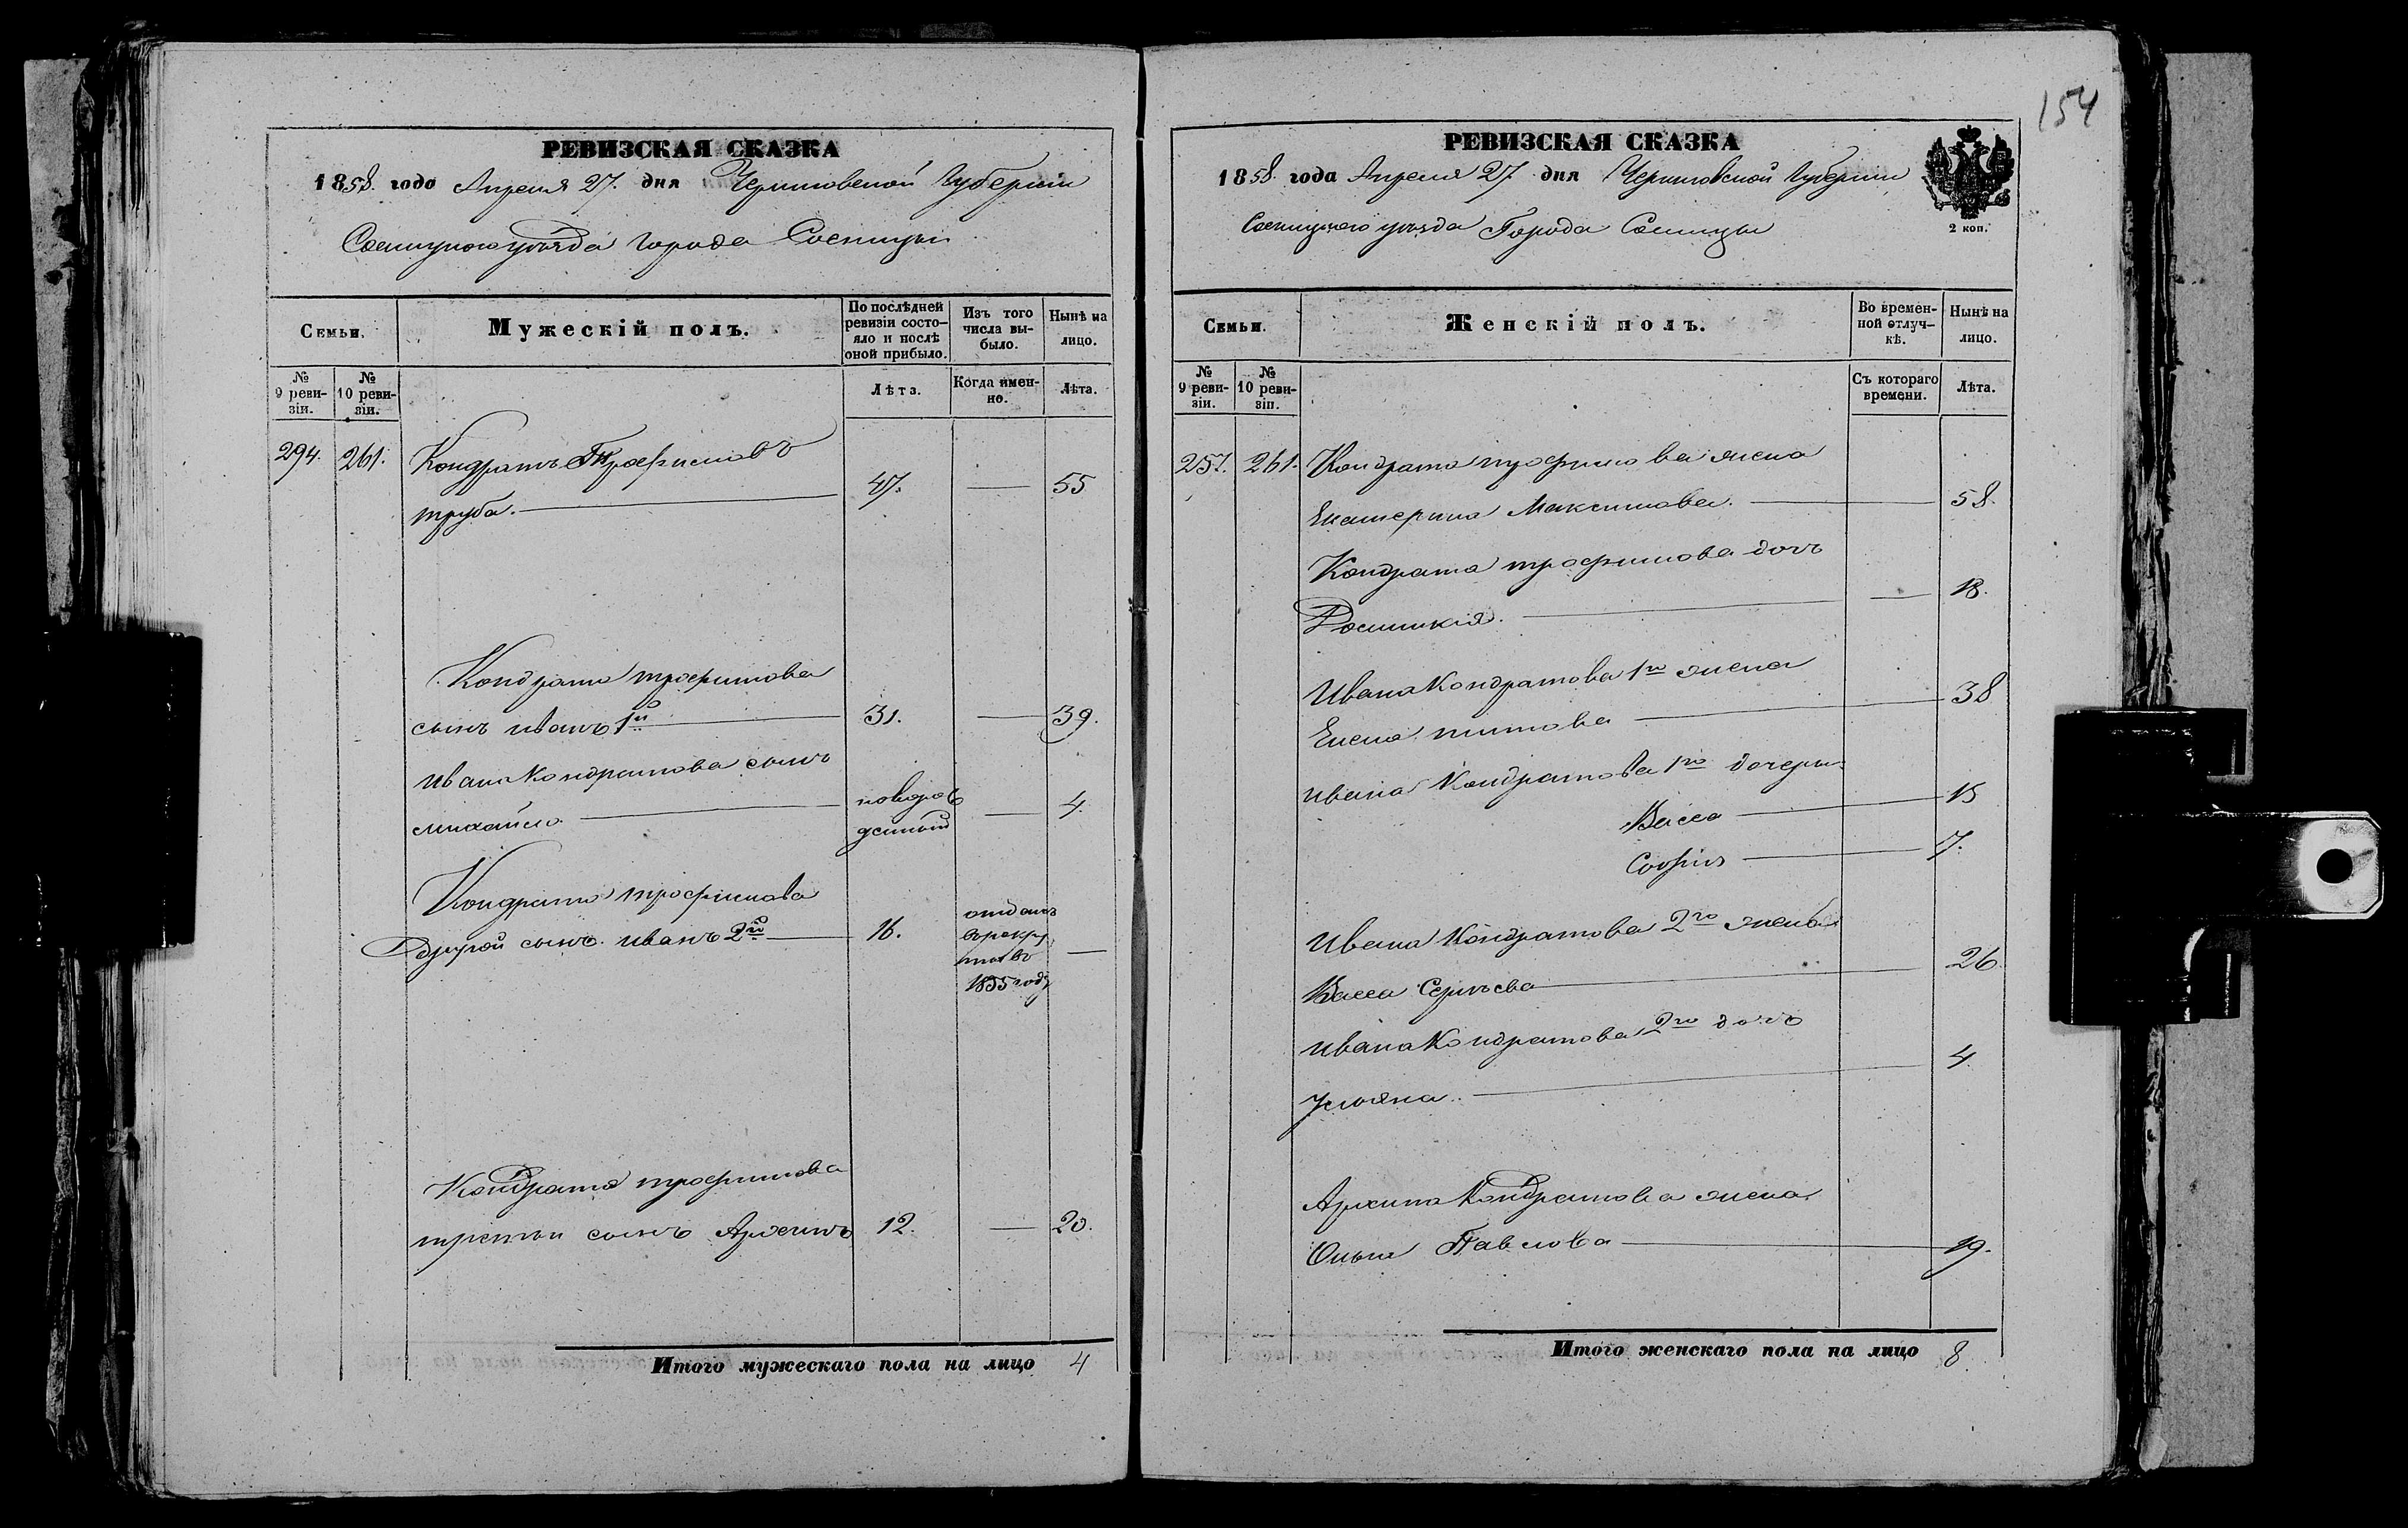 РЕВИЗСКАЯ СКАЗКА
1858 года Апреля 27 дня Черниговской Губернии
Сосницкого уѣзда города Сосницы
Семьи.
Мужескій полъ.
По послѣдней ревизіи состо-
яло и послѣ оной прибыло.
Изъ того числа вы-
было.
Нынѣ на лицо.
№ 9 реви-
зіи.
№ 10 реви-
зіи.
Лѣта.
Когда имен-
но.
Лѣта.
294. 261. Кондратъ Трофимовъ
труба. 47. — 55
Кондрата трофимова
сынъ иванъ 1й 31. — 39.
ивана Кондратова сынъ
михайло новорож
денный — 4.
Кондрата трофимова
другой сынъ иванъ 2й 16. отданъ
в рекру
ты въ
1855 году —
Кондрата трофимова
третьи сынъ Архипъ 12. — 20.
Итого мужескаго пола на лицо 4
154
РЕВИЗСКАЯ СКАЗКА
1858 года Апреля 27 дня Черниговской Губернии
Сосницкого уѣзда Города Сосницы
2 коп.
Семьи.
Женскій полъ.
Во времен-
ной отлуч-
кѣ.
Нынѣ на лицо.
№ 9 реви-
зіи.
№ 10 реви-
зіи.
Съ котораго времени.
Лѣта.
257. 261. Кондрата трофимова жена
Екатерина Максимова. 58.
Кондрата трофимова дочь
— 18.
Ивана Кондратова 1го жена
Елена титова 38
ивана Кондратова 1го дочери
Васса 15
София 7.
Ивана Кондратова 2го жена
Васса Сергѣева 26.
ивана Кондратова 2го дочь
ульяна. 4.
Архипа Кондратова жена
Ольга Павлова 19.
Итого женскаго пола на лицо 8.